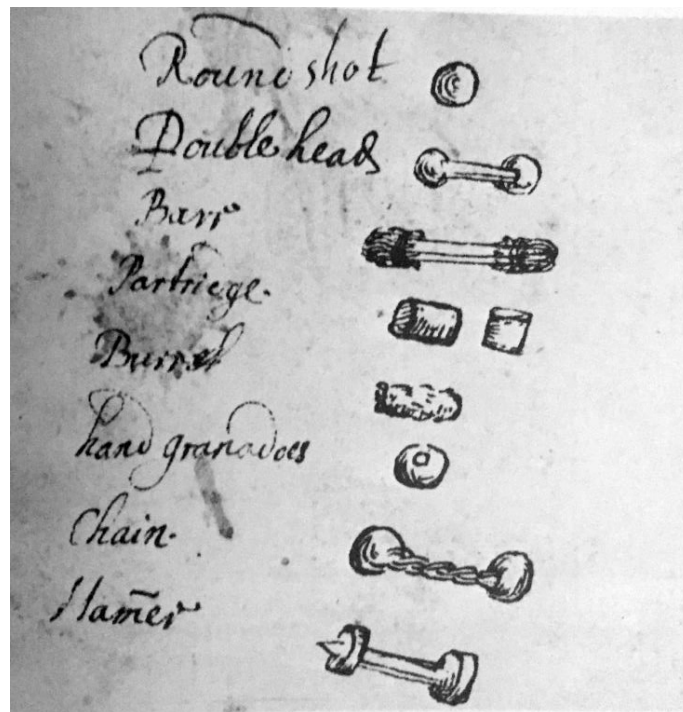 Round shot
Double head
Barr
Partriege.
Burrel
hand granadoes
Chain.
Ham̄er